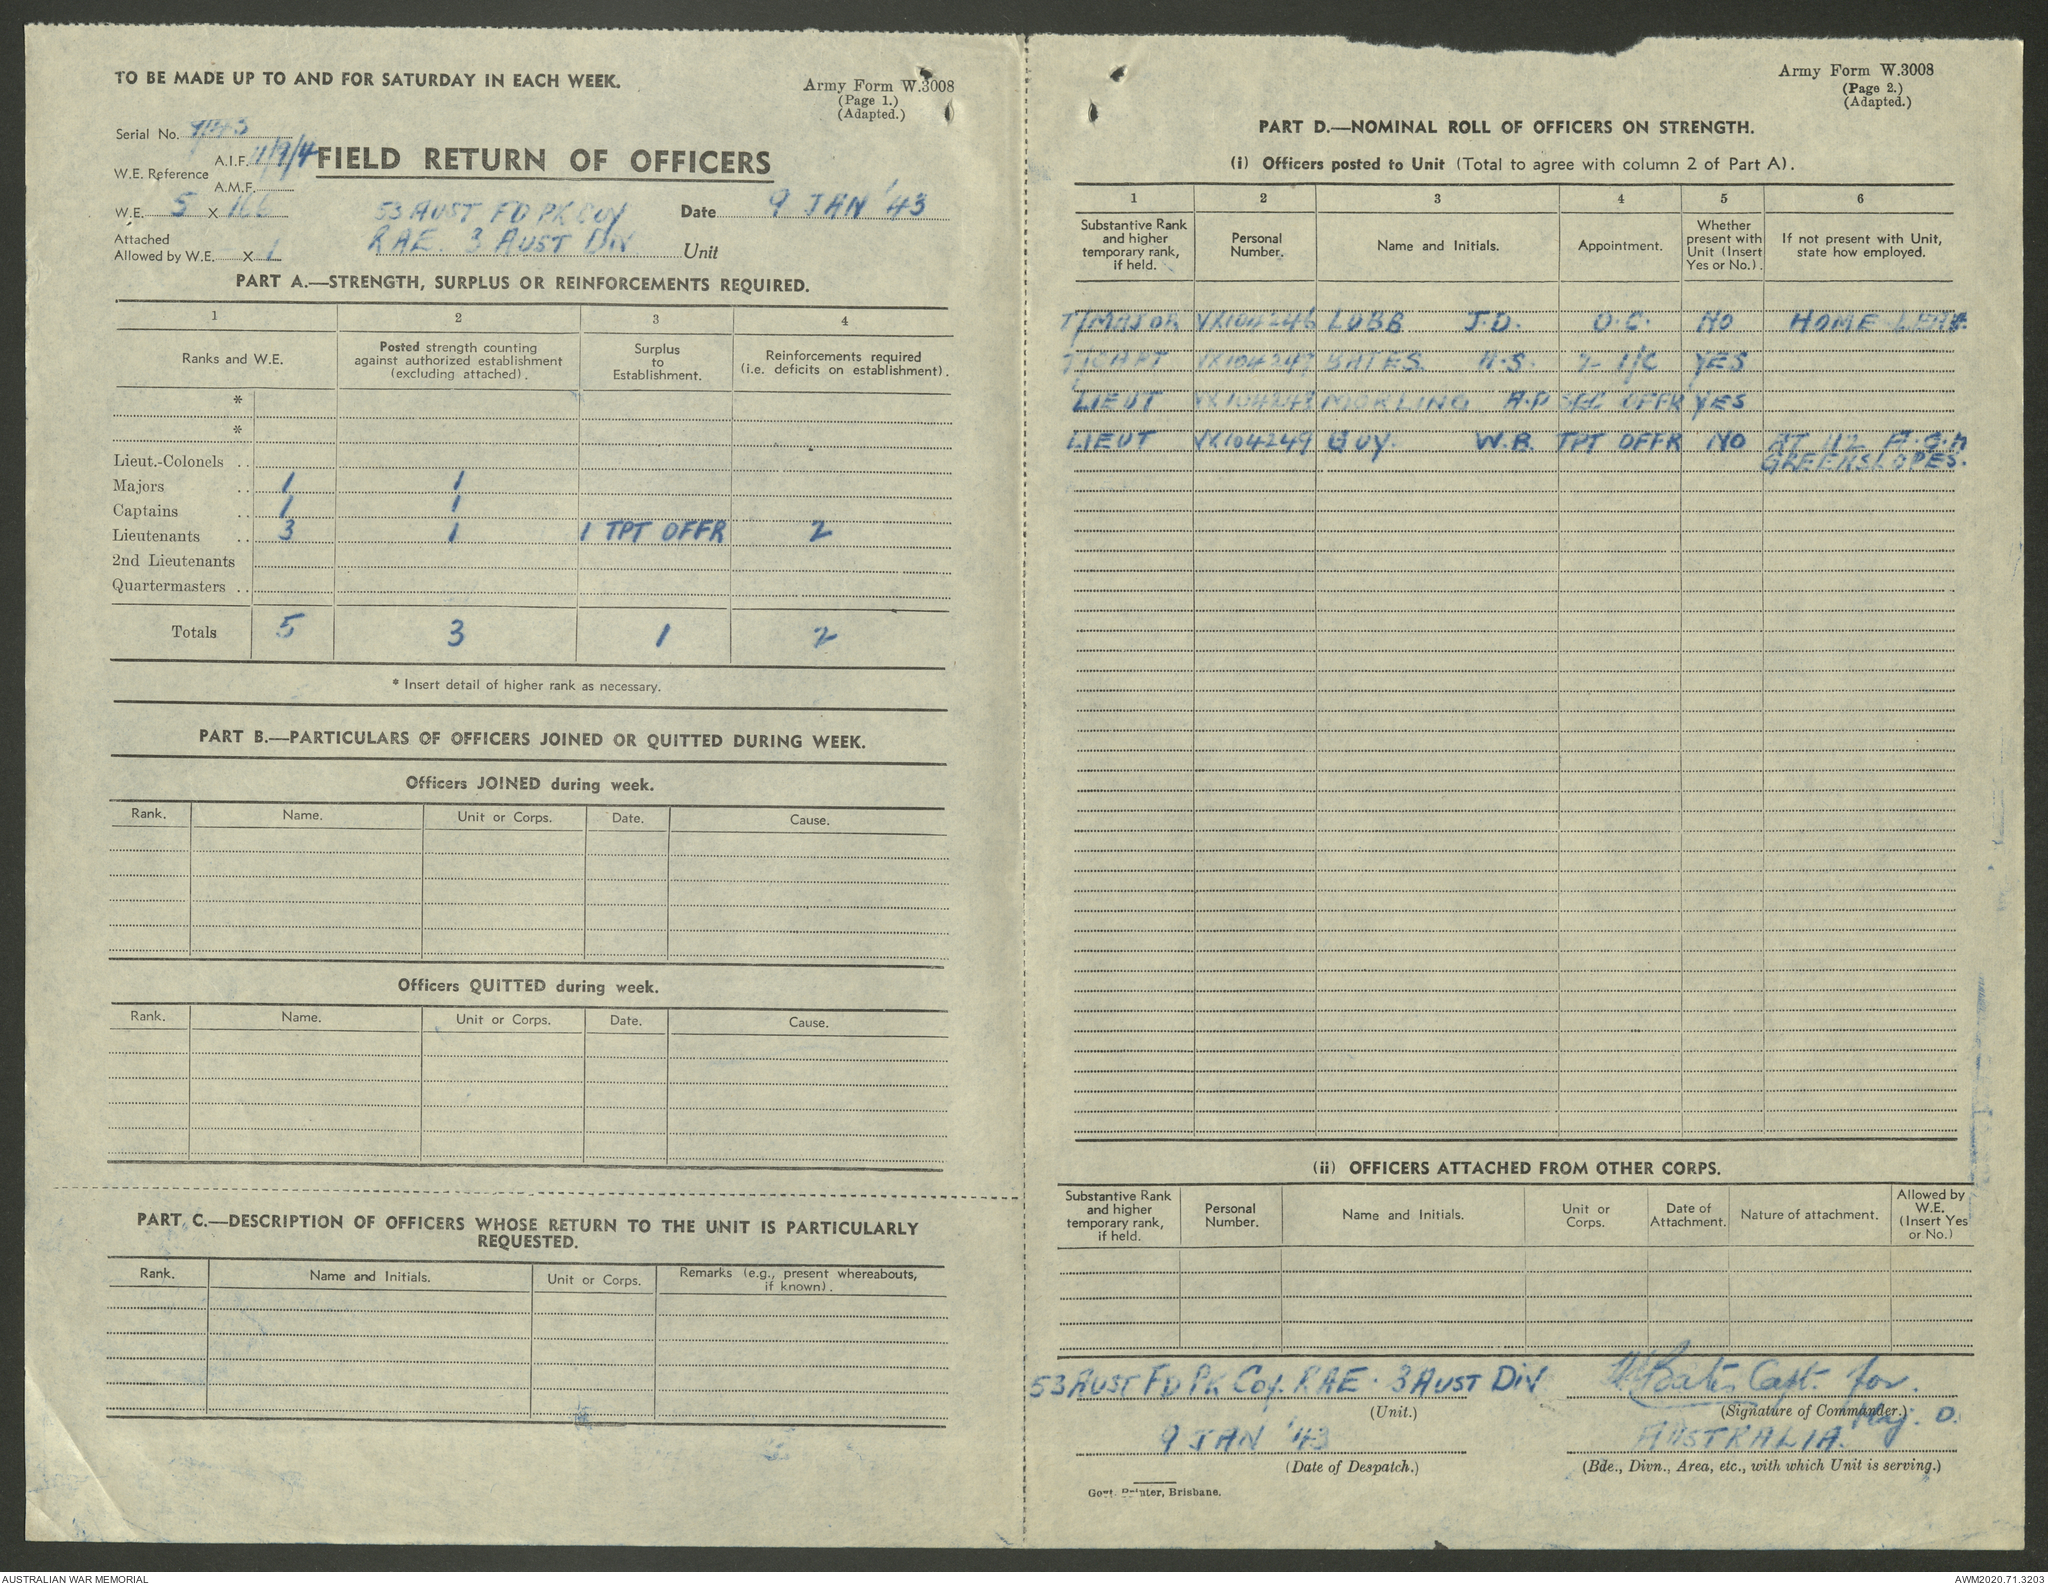 TO BE MADE UP TO AND FOR SATURDAY IN EACH WEEK.
Army Form W.3008
(Page 1.)
(Adapted.)
Serial No.
W.E. Reference A.I.F.
A.M.F.
FIELD RETURN OF OFFICERS
W.E. 5 X 166
53 AUST FD PK COY
Date 9 JAN '43
Attached
Allowed by W.E. X 1
RAE. 3 AUST DIV. Unit
PART A.—STRENGTH, SURPLUS OR REINFORCEMENTS REQUIRED.
1 2 3 4
Ranks and W.E.
Posted strength counting against authorized establishment (excluding attached).
Surplus to Establishment.
Reinforcements required (i.e. deficits on establishment).
*
*
Lieut.-Colonels ..
Majors .. 1 1
Captains .. 1 1
Lieutenants .. 3 1 1 TPT OFFR 2
2nd Lieutenants
Quartermasters ..
Totals 5 3 1 2
* Insert detail of higher rank as necessary.
PART B.—PARTICULARS OF OFFICERS JOINED OR QUITTED DURING WEEK.
Officers JOINED during week.
Rank. Name. Unit or Corps. Date. Cause.
Officers QUITTED during week.
Rank. Name. Unit or Corps. Date. Cause.
PART C.—DESCRIPTION OF OFFICERS WHOSE RETURN TO THE UNIT IS PARTICULARLY
REQUESTED.
Rank. Name and Initials. Unit or Corps. Remarks (e.g., present whereabouts, if known).
Army Form W.3008
(Page 2.)
(Adapted.)
PART D.—NOMINAL ROLL OF OFFICERS ON STRENGTH.
(i) Officers posted to Unit (Total to agree with column 2 of Part A).
1 2 3 4 5 6
Substantive Rank and higher temporary rank, if held.
Personal Number.
Name and Initials.
Appointment.
Whether present with Unit (Insert Yes or No.).
If not present with Unit, state how employed.
T/MAJOR VX104246 LUBB J.D. O.C. NO HOME LEAVE
T/CAPT VX104247 BATES. H.S. 2 I/C YES
LIEUT MORLING A.P SEC OFFR YES
LIEUT VX104249 GUY. W.B. TPT OFFR NO AT 112 A.G.H
GREENSLOPES.
(ii) OFFICERS ATTACHED FROM OTHER CORPS.
Substantive Rank and higher temporary rank, if held.
Personal Number.
Name and Initials.
Unit or Corps.
Date of Attachment.
Nature of attachment.
Allowed by W.E. (Insert Yes or No.)
53 AUST FD PK COY. RAE. 3 AUST DIV
Bates Capt. for.
(Unit.)
(Signature of Commander.)
Maj. O.
9 JAN '43
AUSTRALIA.
(Date of Despatch.)
(Bde., Divn., Area, etc., with which Unit is serving.)
Govt. Printer, Brisbane.
AUSTRALIAN WAR MEMORIAL
AWM2020.71.3203